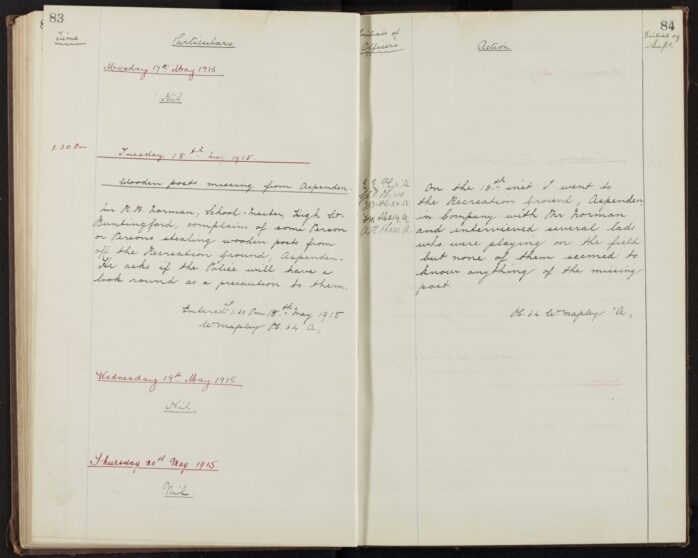 83
Time
Particulars
Monday 17th May 1915
Nil
1.30 Pm
Tuesday 18th May 1915
Wooden posts missing from Aspenden.
Mr R.B. Norman, School-Master, High St-
Buntingford, complain of some Person
or Persons stealing wooden posts from
off the Recreation Ground, Aspenden.
He asks if the Police will have a
look round as a precaution to them.
Entered 1.30 Pm 18th May 1915
W Mapley Pc. 64 A.
Wednesday 19th May 1915
Nil
Thursday 20th May 1915
Nil.
84
Initials of
Officers
Action
Initial of
Supt
On the 18th inst I went to
the Recreation Ground, Aspenden
in Company with Mr Norman
and interviewed several lads
who were playing on the field
but none of them seemed to
know anything of the missing
post.
Pc. 64 W Mapley "A"